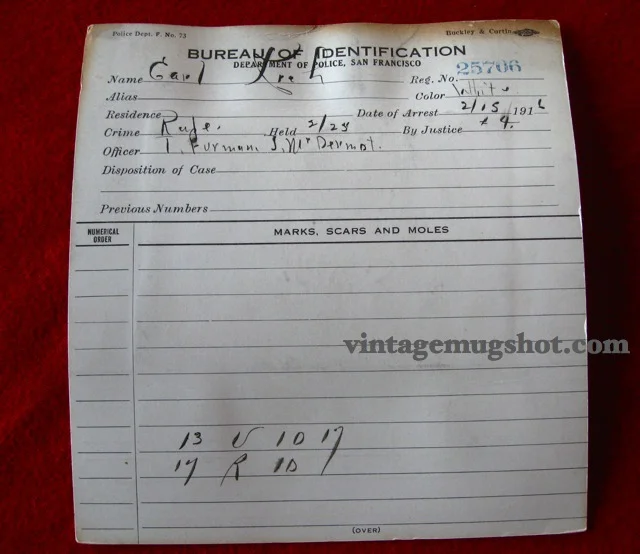 Police Dept. F. No. 73 Buckley & Curtin
BUREAU OF IDENTIFICATION
DEPARTMENT OF POLICE, SAN FRANCISCO
Name Carl Reg. No. 25706
Alias Color White
Residence Date of Arrest 2/15 1916
Crime Rape. Held 2/23 By Justice # 9.
Officer T. Furman J. McDermot.
Disposition of Case
Previous Numbers
NUMERICAL ORDER MARKS, SCARS AND MOLES
vintagemugshot.com
13 U 10 17
17 R 10
(OVER)